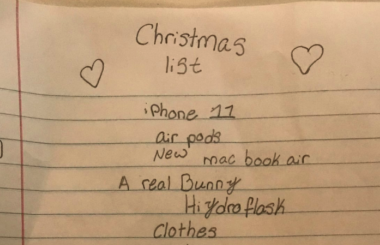 Christmas
list
iPhone 11
air pods
New mac book air
A real Bunny
Hiydroflask
Clothes